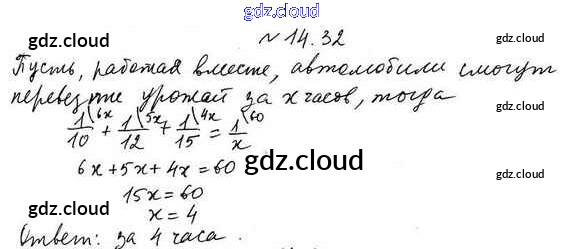 gdz.cloud
№ 14.32
gdz.cloud gdz.cloud
Пусть, работая вместе, автомобили смогут
перевезти урожай за x часов, тогда
gdz.cloud gdz.cloud
1/10 \6x + 1/12 \5x + 1/15 \4x = 1/x \60
6x + 5x + 4x = 60
gdz.cloud
gdz.cloud
15x = 60
gdz.cloud
x = 4
Ответ: за 4 часа.
gdz.cloud